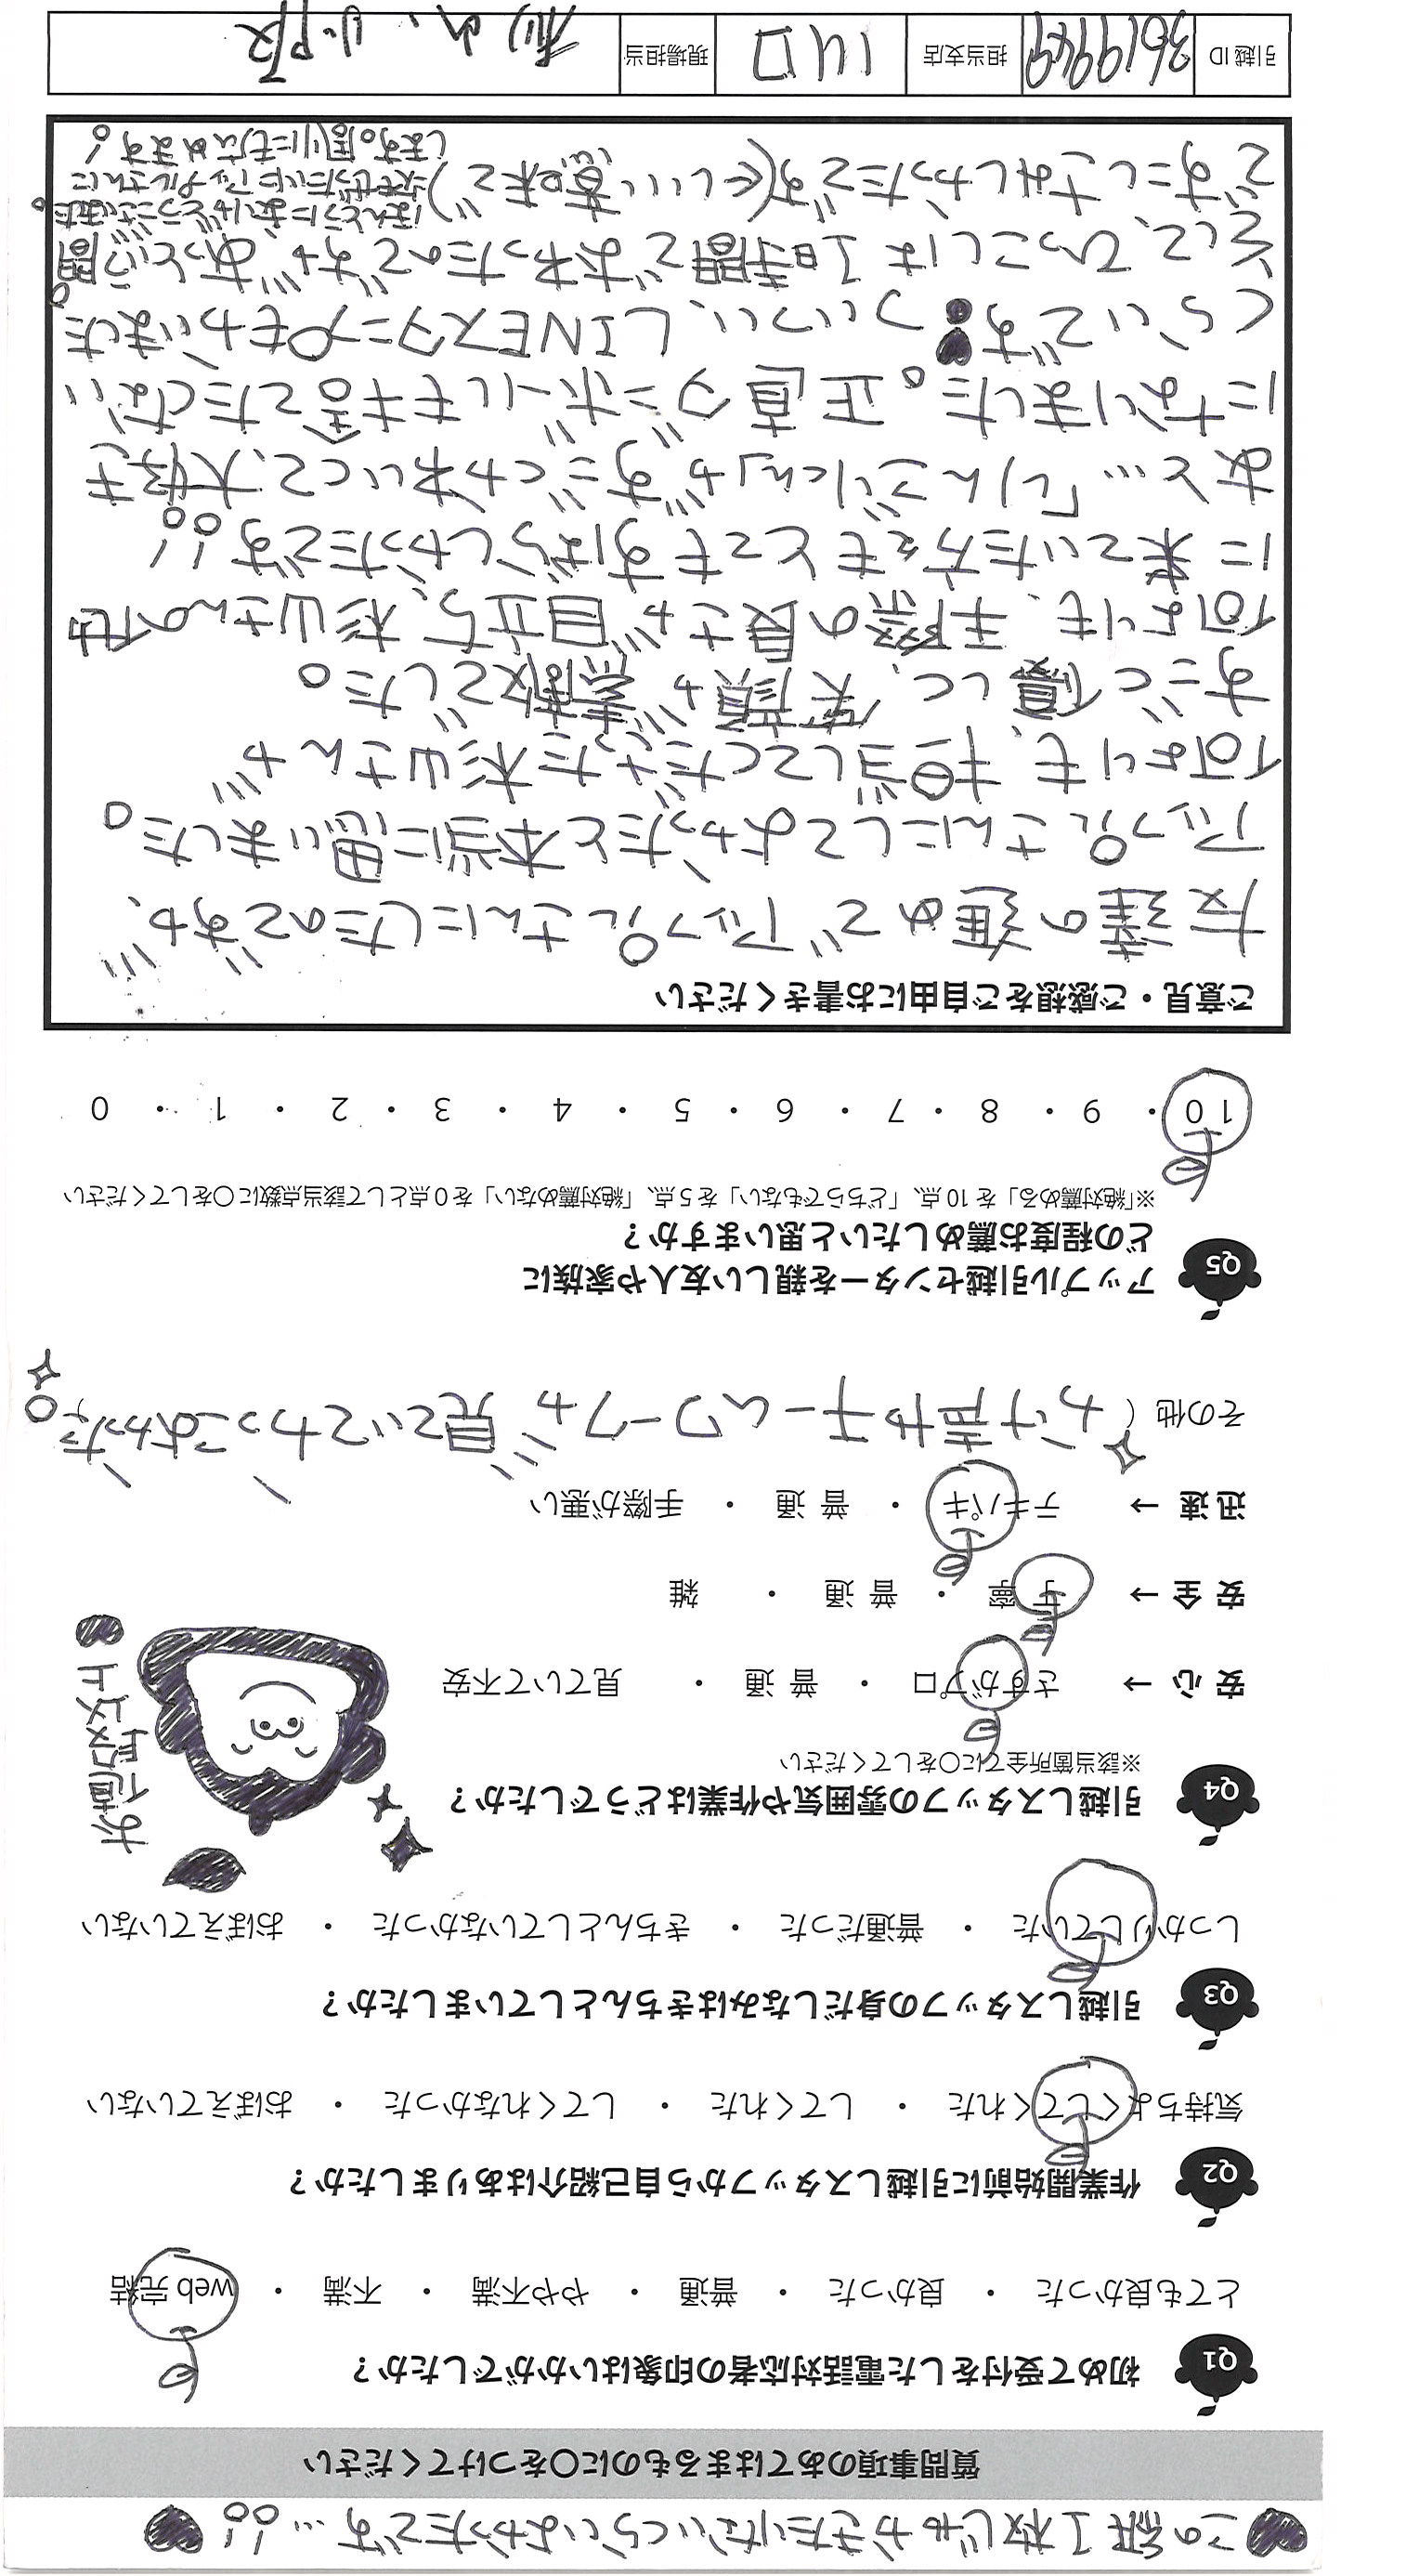 ♥この紙1枚じゃかきたりないくらいよかったです…!!♥
質問事項のあてはまるものに〇をつけてください
Q1 初めて受付をした電話対応者の印象はいかがでしたか？
とても良かった ・ 良かった ・ 普通 ・ やや不満 ・ 不満 ・ web 完結
Q2 作業開始前に引越しスタッフから自己紹介はありましたか？
気持ちよくしてくれた ・ してくれた ・ してくれなかった ・ おぼえていない
Q3 引越しスタッフの身だしなみはきちんとしていましたか？
しっかりしていた ・ 普通だった ・ きちんとしていなかった ・ おぼえていない
Q4 引越しスタッフの雰囲気や作業はどうでしたか？
※該当箇所全てに〇をしてください
安 心 → さすがプロ ・ 普 通 ・ 見ていて不安
安 全 → 丁 寧 ・ 普 通 ・ 雑
迅 速 → テキパキ ・ 普 通 ・ 手際が悪い
お値段以上♥
その他（ かけ声やチームワークが見ていてかっこよかった。
Q5 アップル引越センターを親しい友人や家族に
どの程度お薦めしたいと思いますか？
※「絶対薦める」を 10 点、「どちらでもない」を 5 点、「絶対薦めない」を 0 点として該当点数に〇をしてください
10 ・ 9 ・ 8 ・ 7 ・ 6 ・ 5 ・ 4 ・ 3 ・ 2 ・ 1 ・ 0
ご意見・ご感想をご自由にお書きください
友達の進めで アップルさんにしたのですが、
アップルさんにしてよかったと本当に思いました。
何よりも、担当してくださった杉山さんが
すごく優しく、笑顔が素敵でした。
何よりも、手際の良さが目立ち、杉山さんの他
に来ていた方々もとってもすばらしかったです!!
あと…「りんごりん」がすごくかわいくて、大好き
になりました。正直ダンボールも捨てたくない
くらいです♥ ついつい、LINEスタンプもかいました。
そして、ひっこしは1時間でおわったのですが、あっという間
ですこしさみしかったです(←いい意味で)
ほんとうにありがとうございました。
次もぜったいにアップルさんに
します。周りにもひろめます!
引越 ID 3619949 担当支店 川口 現場担当 杉山、